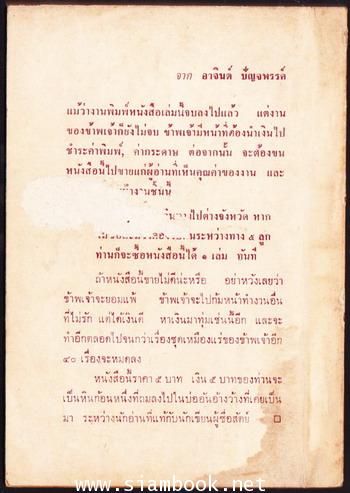 จาก อาจินต์ ปัญจพรรค์
แม้ว่างานพิมพ์หนังสือเล่มนี้จบลงไปแล้ว แต่งาน
ของข้าพเจ้าก็ยังไม่จบ ข้าพเจ้ามีหน้าที่ต้องนำเงินไป
ชำระค่าพิมพ์, ค่ากระดาษ ต่อจากนั้น จะต้องขน
หนังสือนี้ไปขายแก่ผู้อ่านที่เห็นคุณค่าของงาน และ
ทำงานชิ้นนี้
ไปต่างจังหวัด หาก
ระหว่างทาง ๕ ลูก
ท่านก็จะซื้อหนังสือนี้ได้ ๑ เล่ม ทันที
ถ้าหนังสือนี้ขายไม่ดีน่ะหรือ อย่าหวังเลยว่า
ข้าพเจ้าจะยอมแพ้ ข้าพเจ้าจะไปก้มหน้าทำงานอื่น
ที่ไม่รัก แต่ได้เงินดี หาเงินมาทุ่มเช่นนี้อีก และจะ
ทำอีกตลอดไปจนกว่าเรื่องชุดเหมืองแร่ของข้าพเจ้าอีก
๔๐ เรื่องจะหมดลง
หนังสือนี้ราคา ๕ บาท เงิน ๕ บาทของท่านจะ
เป็นหินก้อนหนึ่งที่ถมลงไปในบ่ออันอ้างว้างที่เคยเป็น
มา ระหว่างนักอ่านที่แท้กับนักเขียนผู้ซื่อสัตย์
www.siambook.net